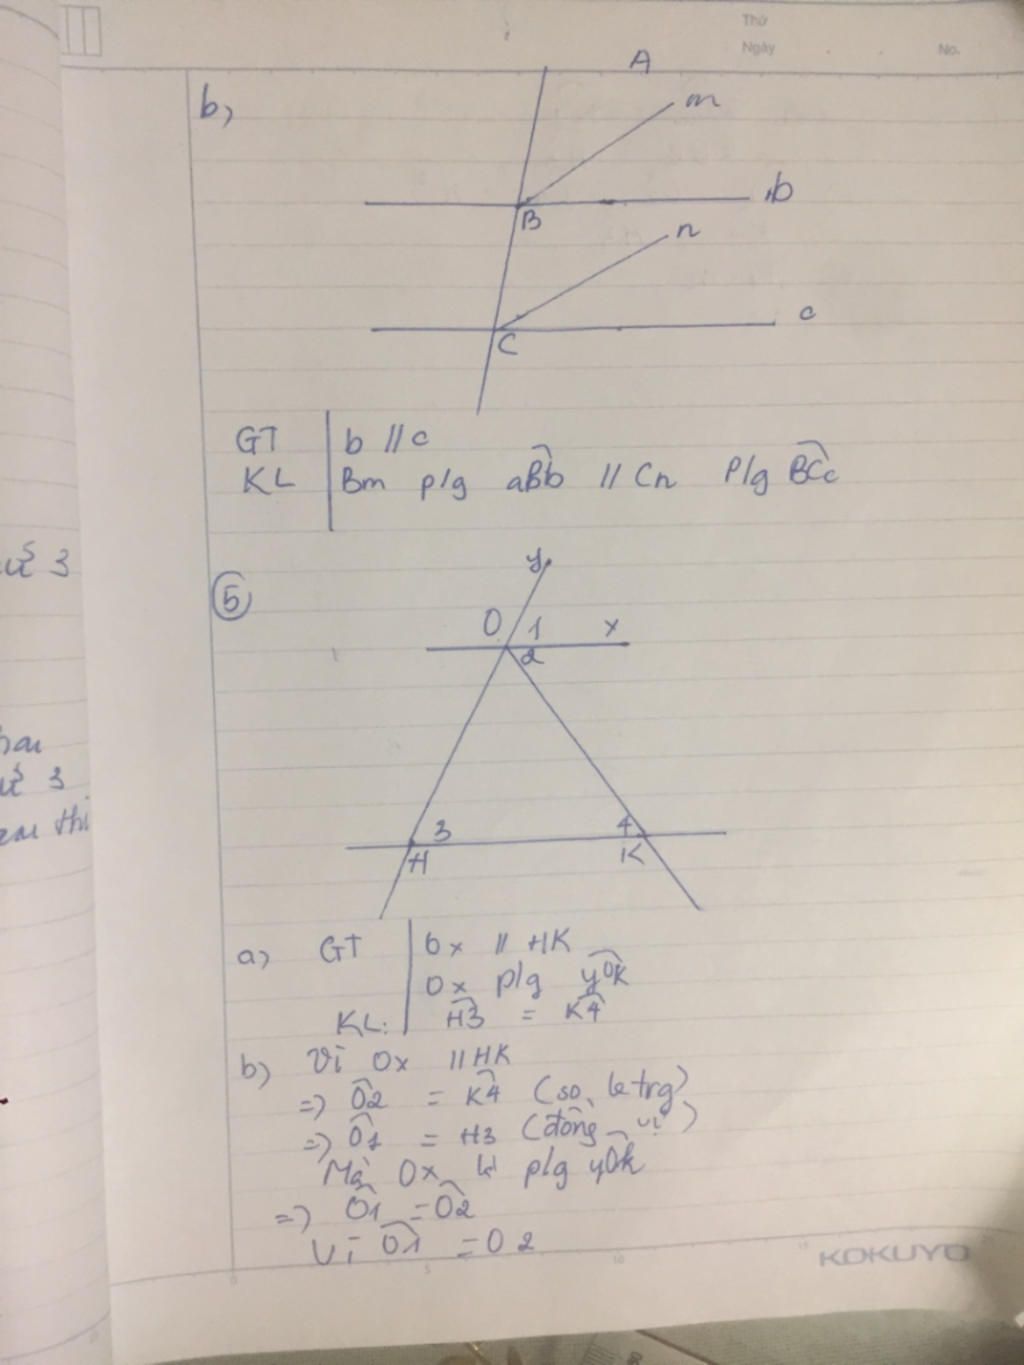 Thứ
Ngày . . No.
A
b)
m
b
B
n
c
C
GT b // c
KL Bm p/g aBb // Cn P/g BCc
uế 3
⑤
y
O 1 x
2
hai
uế 3
thì
3 4
H K
a) GT Ox // HK
Ox p/g yOK
KL: H3 = K4
b) Vì Ox // HK
=) O2 = K4 (so le trg)
=) O1 = H3 (đồng vị)
Mà Ox là p/g yOk
=) O1 = O2
Vì O1 = O2
KOKUYO
0 5 10